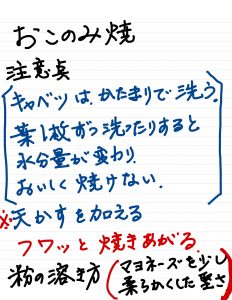 おこのみ焼
注意点
キャベツは、かたまりで洗う。
葉1枚ずつ洗ったりすると
水分量が変わり、
おいしく焼けない。
※天かすを加える
フワッと焼きあがる。
粉の溶き方(マヨネーズを少し
柔らかくした堅さ)